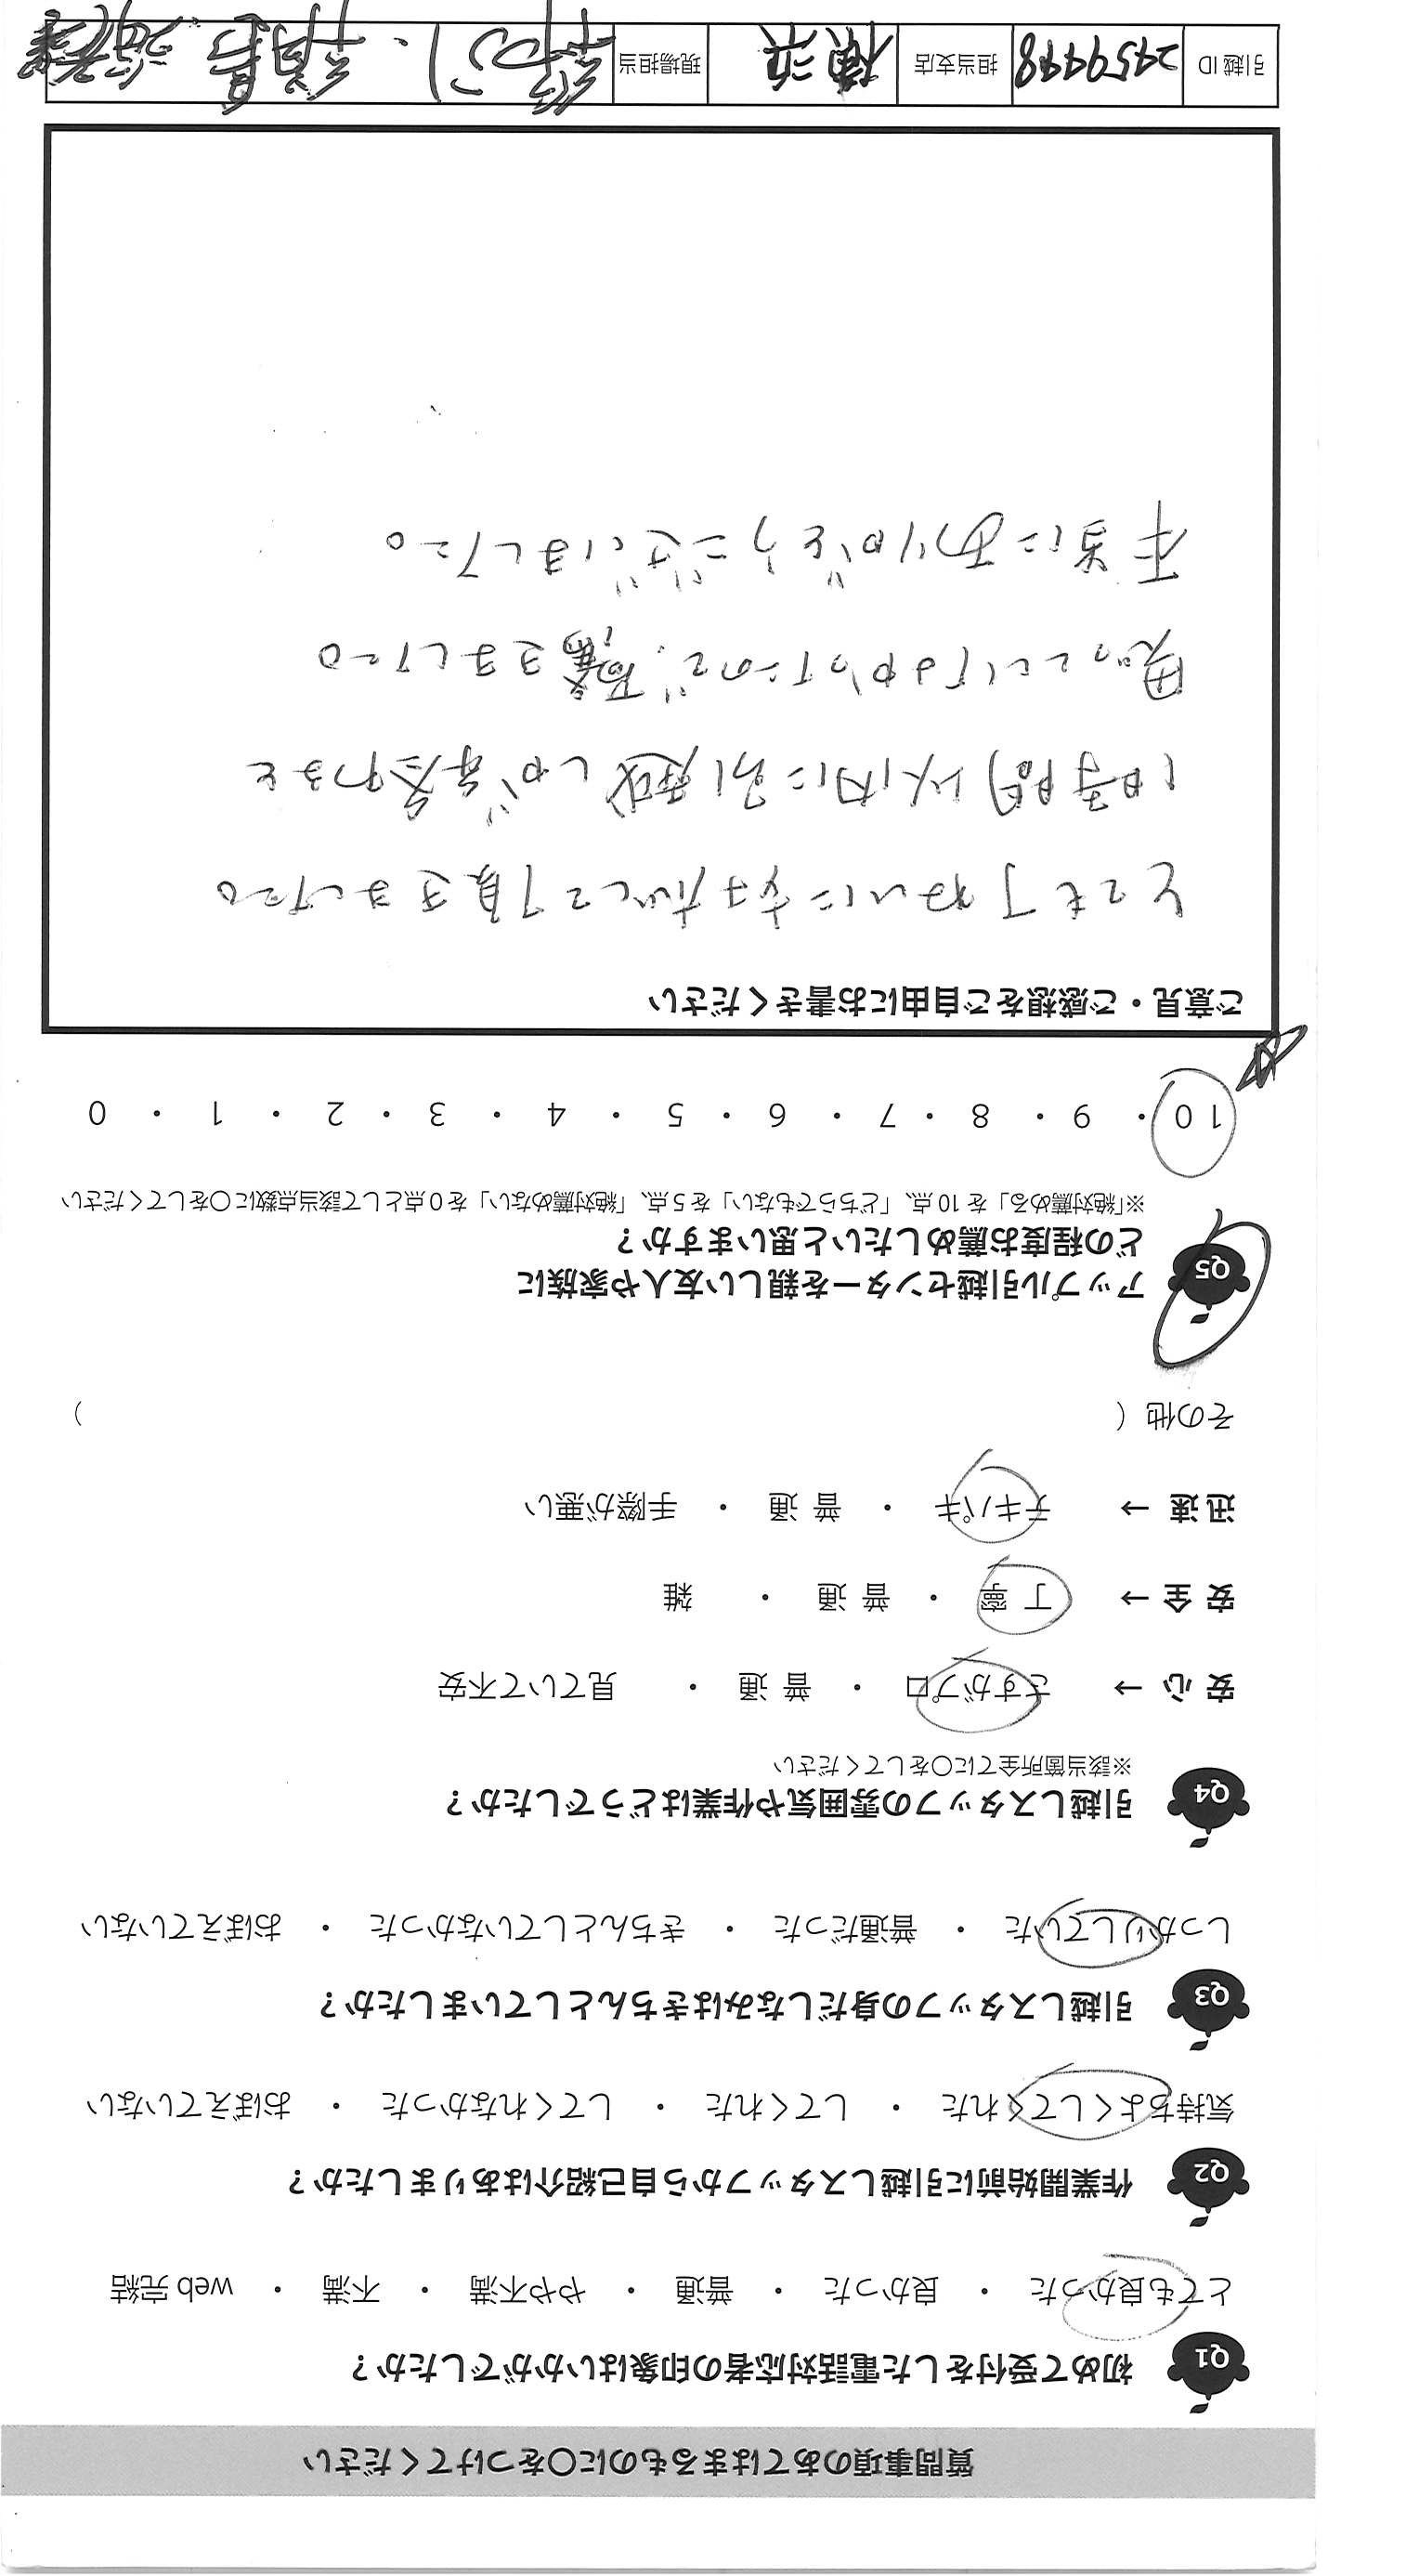 質問事項のあてはまるものに〇をつけてください
Q1 初めて受付をした電話対応者の印象はいかがでしたか？
とても良かった ・ 良かった ・ 普通 ・ やや不満 ・ 不満 ・ web 完結
Q2 作業開始前に引越しスタッフから自己紹介はありましたか？
気持ちよくしてくれた ・ してくれた ・ してくれなかった ・ おぼえていない
Q3 引越しスタッフの身だしなみはきちんとしていましたか？
しっかりしていた ・ 普通だった ・ きちんとしていなかった ・ おぼえていない
Q4 引越しスタッフの雰囲気や作業はどうでしたか？
※該当箇所全てに〇をしてください
安 心 → さすがプロ ・ 普 通 ・ 見ていて不安
安 全 → 丁 寧 ・ 普 通 ・ 雑
迅 速 → テキパキ ・ 普 通 ・ 手際が悪い
その他（ ）
Q5 アップル引越センターを親しい友人や家族に
どの程度お薦めしたいと思いますか？
※「絶対薦める」を 10 点、「どちらでもない」を 5 点、「絶対薦めない」を 0 点として該当点数に〇をしてください
10 ・ 9 ・ 8 ・ 7 ・ 6 ・ 5 ・ 4 ・ 3 ・ 2 ・ 1 ・ 0
ご意見・ご感想をご自由にお書きください
とても丁ねいに対応して頂きました。
1時間以内に引越しが完了すると
思っていなかったので、驚きました。
本当にありがとうございました。
引越 ID 2959998 担当支店 横浜 現場担当